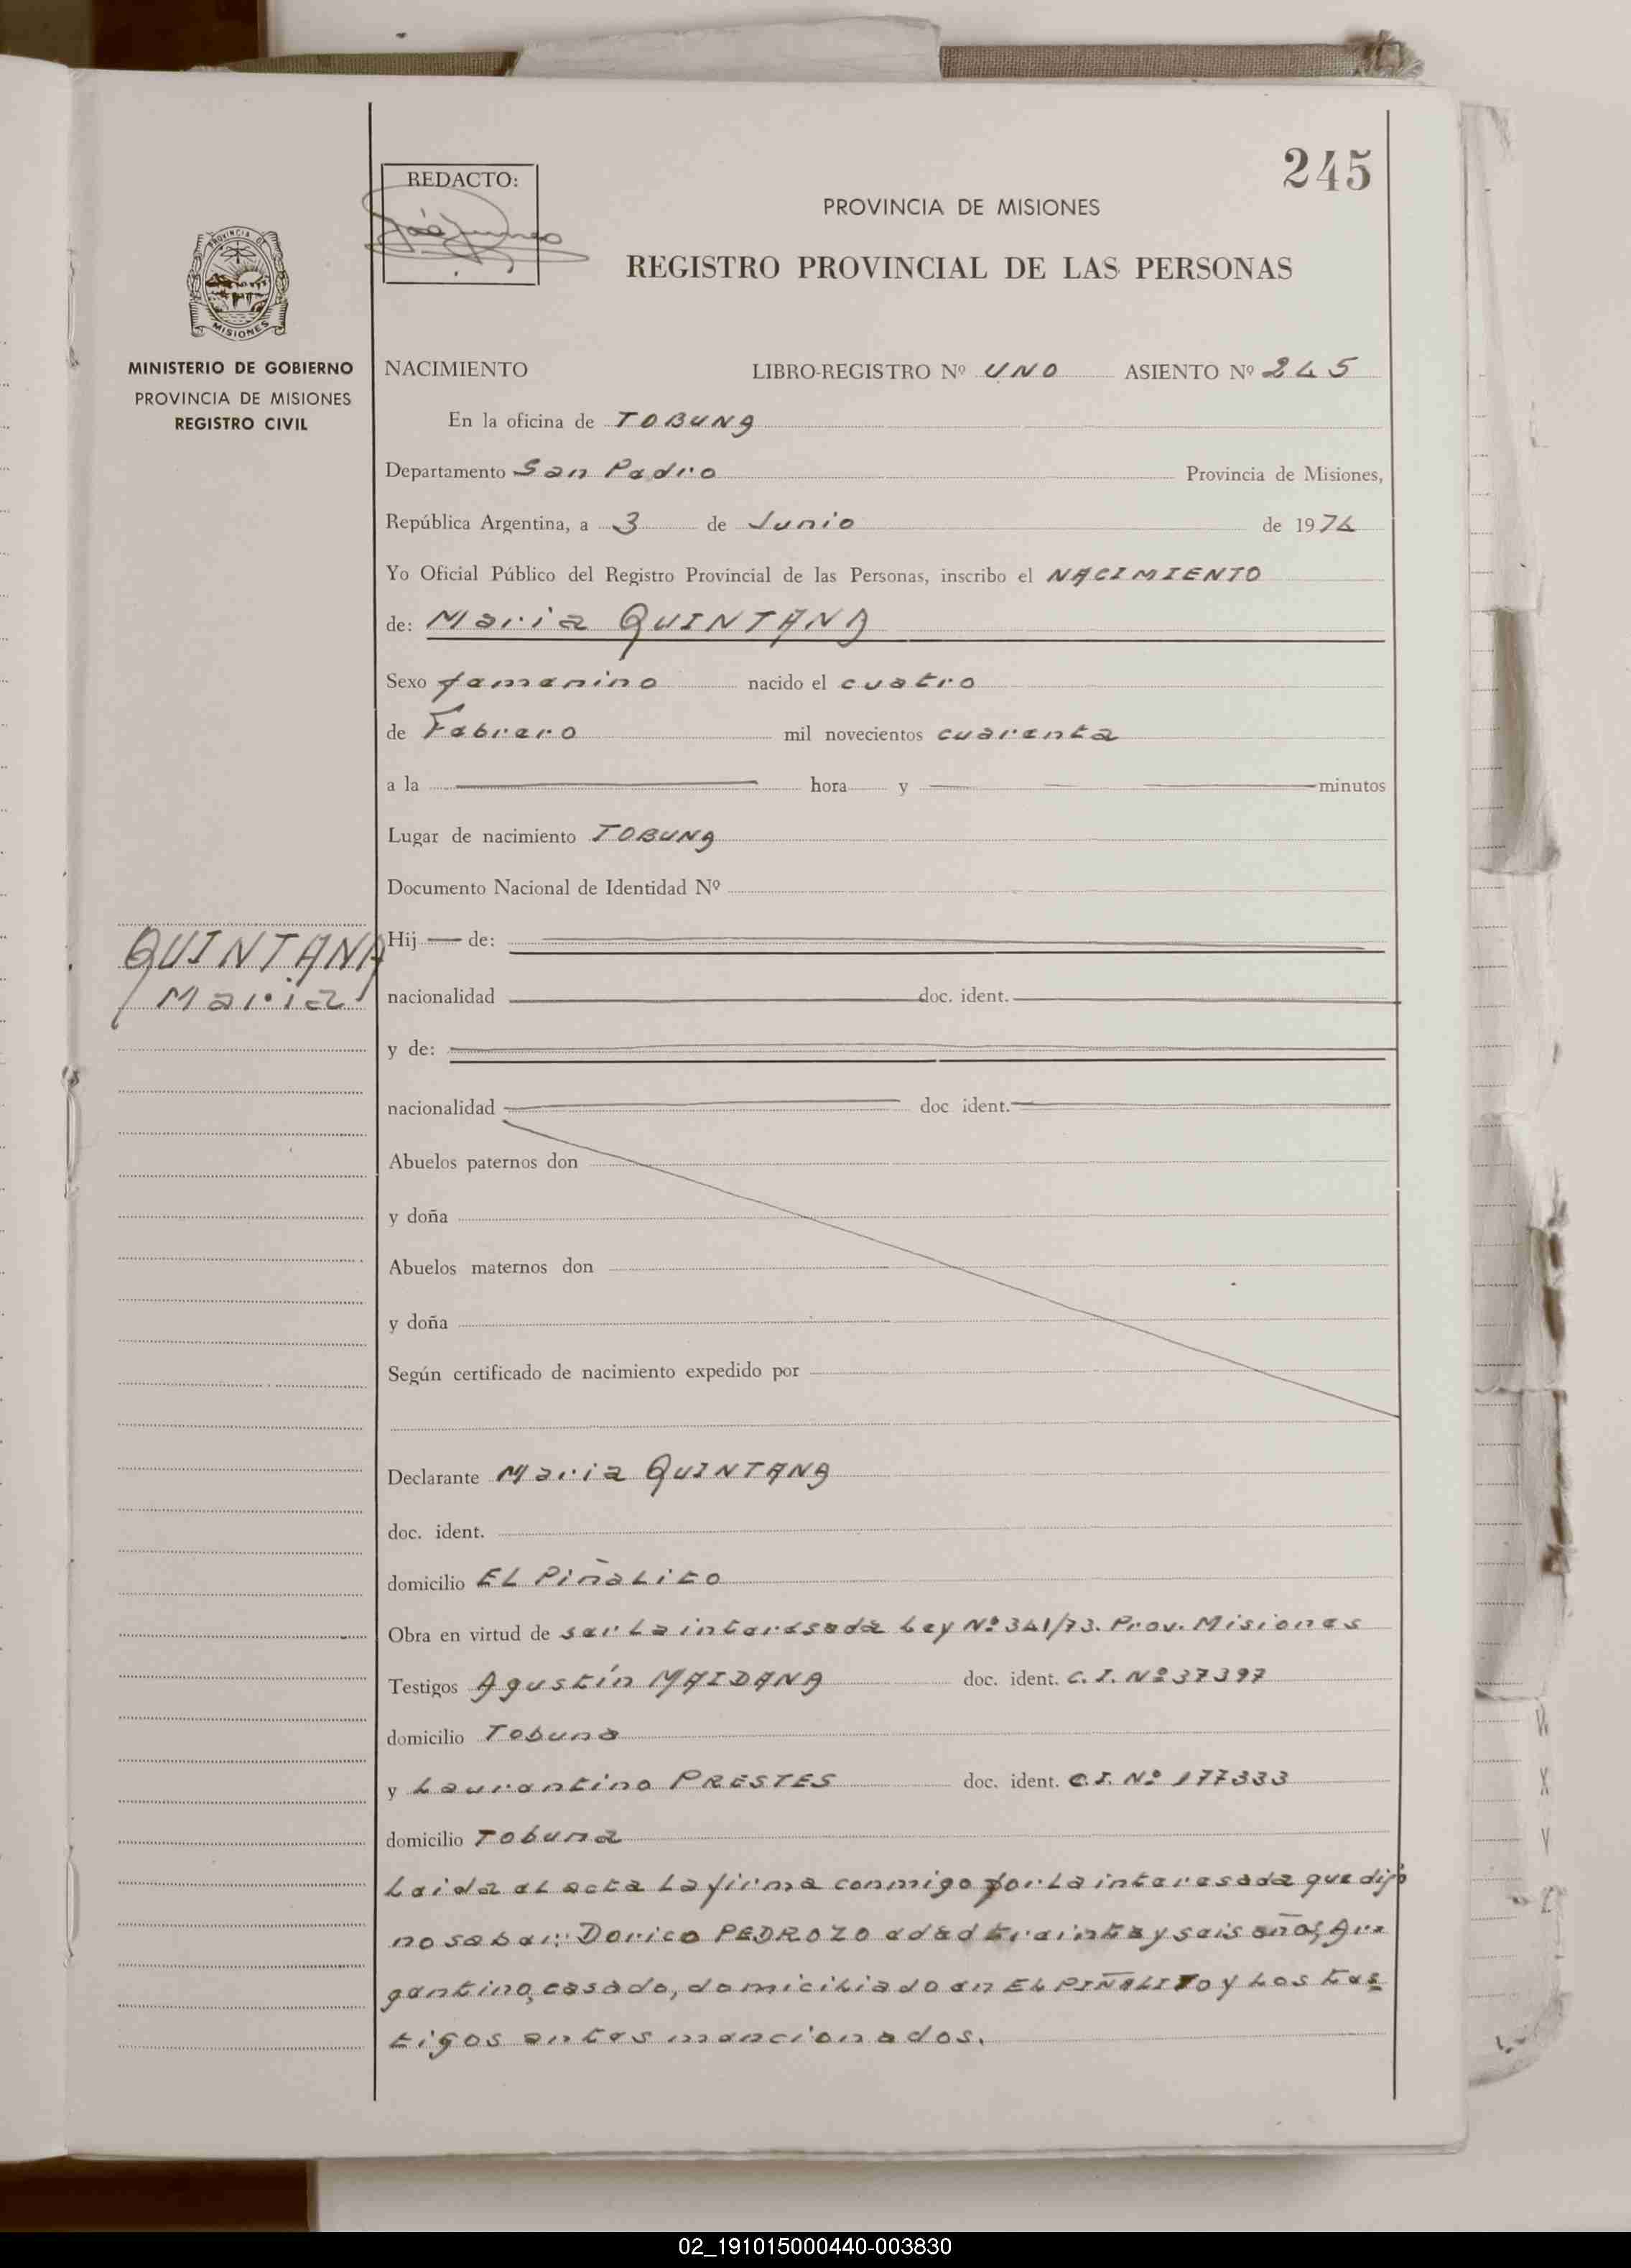 245
REDACTO:
PROVINCIA DE MISIONES
REGISTRO PROVINCIAL DE LAS PERSONAS
PROVINCIA DE
MISIONES
MINISTERIO DE GOBIERNO
PROVINCIA DE MISIONES
REGISTRO CIVIL
NACIMIENTO LIBRO-REGISTRO Nº UNO ASIENTO Nº 245
En la oficina de TOBUNA
Departamento San Pedro Provincia de Misiones,
República Argentina, a 3 de Junio de 1974
Yo Oficial Público del Registro Provincial de las Personas, inscribo el NACIMIENTO
de: Maria QUINTANA
Sexo femenino nacido el cuatro
de Febrero mil novecientos cuarenta
a la hora y minutos
Lugar de nacimiento TOBUNA
Documento Nacional de Identidad Nº
QUINTANA
Maria
Hij de:
nacionalidad doc. ident.
y de:
nacionalidad doc ident.
Abuelos paternos don
y doña
Abuelos maternos don
y doña
Según certificado de nacimiento expedido por
Declarante Maria QUINTANA
doc. ident.
domicilio EL Piñalito
Obra en virtud de ser la interesada Ley Nº 341/73. Prov. Misiones
Testigos Agustín MAIDANA doc. ident. C. I. Nº 37397
domicilio Tobuna
y Laurentino PRESTES doc. ident. C. I. Nº 177333
domicilio Tobuna
Leida el acta la firma conmigo por la interesada que dijo
no saber: Dorico PEDROZO edad treinta y seis años, Ar=
gentino, casado, domiciliado en EL PIÑALITO y los tes=
tigos antes mencionados.
W
X
Y
Z
02_191015000440-003830